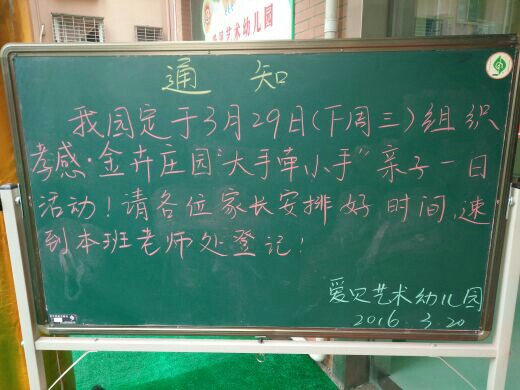 艺术幼儿园
通知
我园定于3月29日(下周三)组织
孝感·金卉庄园"大手牵小手"亲子一日
活动!请各位家长安排好时间,速
到本班老师处登记!
爱贝艺术幼儿园
2016.3.20